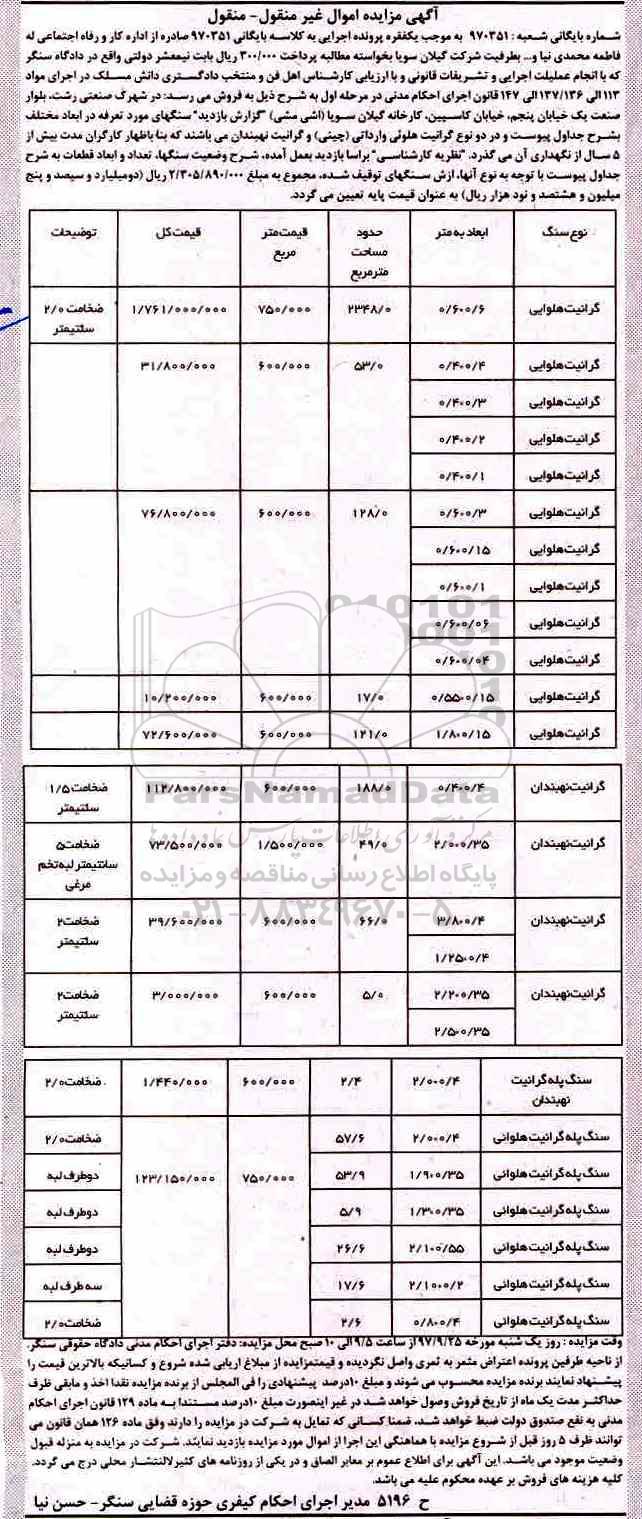 آگهی مزایده اموال غیر منقول- منقول
شماره بایگانی شعبه : ۹۷۰۳۵۱ به موجب یکفقره پرونده اجرایی به کلاسه بایگانی ۹۷۰۳۵۱ صادره از اداره کار و رفاه اجتماعی له
فاطمه محمدی نیا و... بطرفیت شرکت گیلان سویا بخواسته مطالبه پرداخت ۳۰۰/۰۰۰ ریال بابت نیمعشر دولتی واقع در دادگاه سنگر
که با انجام عملیلت اجرایی و تشریفات قانونی و با ارزیابی کارشناس اهل فن و منتخب دادگستری دانش مسلک در اجرای مواد
۱۱۳ الی ۱۳۷/۱۳۶ الی ۱۴۷ قانون اجرای احکام مدنی در مرحله اول به شرح ذیل به فروش می رسد: در شهرک صنعتی رشت، بلوار
صنعت یک خیابان پنجم، خیابان کاسپین، کارخانه گیلان سویا (اشی مشی) "گزارش بازدید" سنگهای مورد تعرفه در ابعاد مختلف
بشرح جداول پیوست و در دو نوع گرانیت هلوئی وارداتی (چینی) و گرانیت نهبندان می باشند که بنا باظهار کارگران مدت بیش از
۵ سال از نگهداری آن می گذرد. "نظریه کارشناسی" براسا بازدید بعمل آمده، شرح وضعیت سنگها، تعداد و ابعاد قطعات به شرح
جداول پیوست با توجه به نوع آنها، ارزش سنگهای توقیف شده، مجموع به مبلغ ۲/۳۰۵/۸۹۰/۰۰۰ ریال (دومیلیارد و سیصد و پنج
میلیون و هشتصد و نود هزار ریال) به عنوان قیمت پایه تعیین می گردد.
نوع سنگ ابعاد به متر حدود مساحت مترمربع قیمت متر مربع قیمت کل توضیحات
گرانیت هلوایی ۰/۶۰۰/۶ ۲۳۴۸/۰ ۷۵۰/۰۰۰ ۱/۷۶۱/۰۰۰/۰۰۰ ضخامت ۲/۰ سانتیمتر
گرانیت هلوایی ۰/۴۰۰/۴ ۵۳/۰ ۶۰۰/۰۰۰ ۳۱/۸۰۰/۰۰۰
گرانیت هلوایی ۰/۴۰۰/۳
گرانیت هلوایی ۰/۴۰۰/۲
گرانیت هلوایی ۰/۴۰۰/۱
گرانیت هلوایی ۰/۶۰۰/۳ ۱۲۸/۰ ۶۰۰/۰۰۰ ۷۶/۸۰۰/۰۰۰
گرانیت هلوایی ۰/۶۰۰/۱۵
گرانیت هلوایی ۰/۶۰۰/۱
گرانیت هلوایی ۰/۶۰۰/۰۶
گرانیت هلوایی ۰/۶۰۰/۰۴
گرانیت هلوایی ۰/۵۵۰/۱۵ ۱۷/۰ ۶۰۰/۰۰۰ ۱۰/۲۰۰/۰۰۰
گرانیت هلوایی ۱/۸۰۰/۱۵ ۱۲۱/۰ ۶۰۰/۰۰۰ ۷۲/۶۰۰/۰۰۰
گرانیت نهبندان ۰/۴۰۰/۴ ۱۸۸/۰ ۶۰۰/۰۰۰ ۱۱۲/۸۰۰/۰۰۰ ضخامت ۱/۵ سانتیمتر
ParsNamadData
گرانیت نهبندان ۲/۰۰۰/۳۵ ۴۹/۰ ۱/۵۰۰/۰۰۰ ۷۳/۵۰۰/۰۰۰ ضخامت ۵ سانتیمتر لبه تخم مرغی
مرکز فرآوری اطلاعات پارس نماد داده ها
پایگاه اطلاع رسانی مناقصه و مزایده
۰۲۱-۸۸۳۴۹۶۷۰-۵
گرانیت نهبندان ۳/۸۰۰/۴ ۶۶/۰ ۶۰۰/۰۰۰ ۳۹/۶۰۰/۰۰۰ ضخامت ۲ سانتیمتر
۱/۲۵۰۰/۴
گرانیت نهبندان ۲/۲۰۰/۳۵ ۵/۰ ۶۰۰/۰۰۰ ۳/۰۰۰/۰۰۰ ضخامت ۲ سانتیمتر
۲/۵۰۰/۳۵
سنگ پله گرانیت نهبندان ۲/۰۰۰/۴ ۲/۴ ۶۰۰/۰۰۰ ۱/۴۴۰/۰۰۰ ضخامت ۲/۰
سنگ پله گرانیت هلوائی ۲/۰۰۰/۴ ۵۷/۶ ضخامت ۲/۰
سنگ پله گرانیت هلوائی ۱/۹۰۰/۳۵ ۵۳/۹ ۷۵۰/۰۰۰ ۱۲۳/۱۵۰/۰۰۰ دو طرف لبه
سنگ پله گرانیت هلوائی ۱/۳۰۰/۳۵ ۵/۹ دو طرف لبه
سنگ پله گرانیت هلوائی ۲/۱۰۰/۵۵ ۲۶/۶ دو طرف لبه
سنگ پله گرانیت هلوائی ۲/۱۰۰/۲ ۱۷/۶ سه طرف لبه
سنگ پله گرانیت هلوائی ۰/۸۰۰/۴ ۲/۶ ضخامت ۲/۰
وقت مزایده : روز یک شنبه مورخه ۹۷/۹/۲۵ از ساعت ۹/۵ الی ۱۰ صبح محل مزایده: دفتر اجرای احکام مدنی دادگاه حقوقی سنگر.
از ناحیه طرفین پرونده اعتراض مثمر به ثمری واصل نگردیده و قیمتمزایده از مبلاغ اریابی شده شروع و کسانیکه بالاترین قیمت را
پیشنهاد نمایند برنده مزایده محسوب می شوند و مبلغ ۱۰درصد پیشنهادی را فی المجلس از برنده مزایده نقدا اخذ و مابقی ظرف
حداکثر مدت یک ماه از تاریخ فروش وصول خواهد شد در غیر اینصورت مبلغ ۱۰درصد مستندا به ماده ۱۲۹ قانون اجرای احکام
مدنی به نفع صندوق دولت ضبط خواهد شد. ضمنا کسانی که تمایل به شرکت در مزایده را دارند وفق ماده ۱۲۶ همان قانون می
توانند ظرف ۵ روز قبل از شروع مزایده با هماهنگی این اجرا از اموال مورد مزایده بازدید نمایند. شرکت در مزایده به منزله قبول
وضعیت موجود می باشد. این آگهی برای اطلاع عموم بر معابر الصاق و در یکی از روزنامه های کثیرلالنتشار محلی درج می گردد.
کلیه هزینه های فروش بر عهده محکوم علیه می باشد.
ح ۵۱۹۶ مدیر اجرای احکام کیفری حوزه قضایی سنگر- حسن نیا